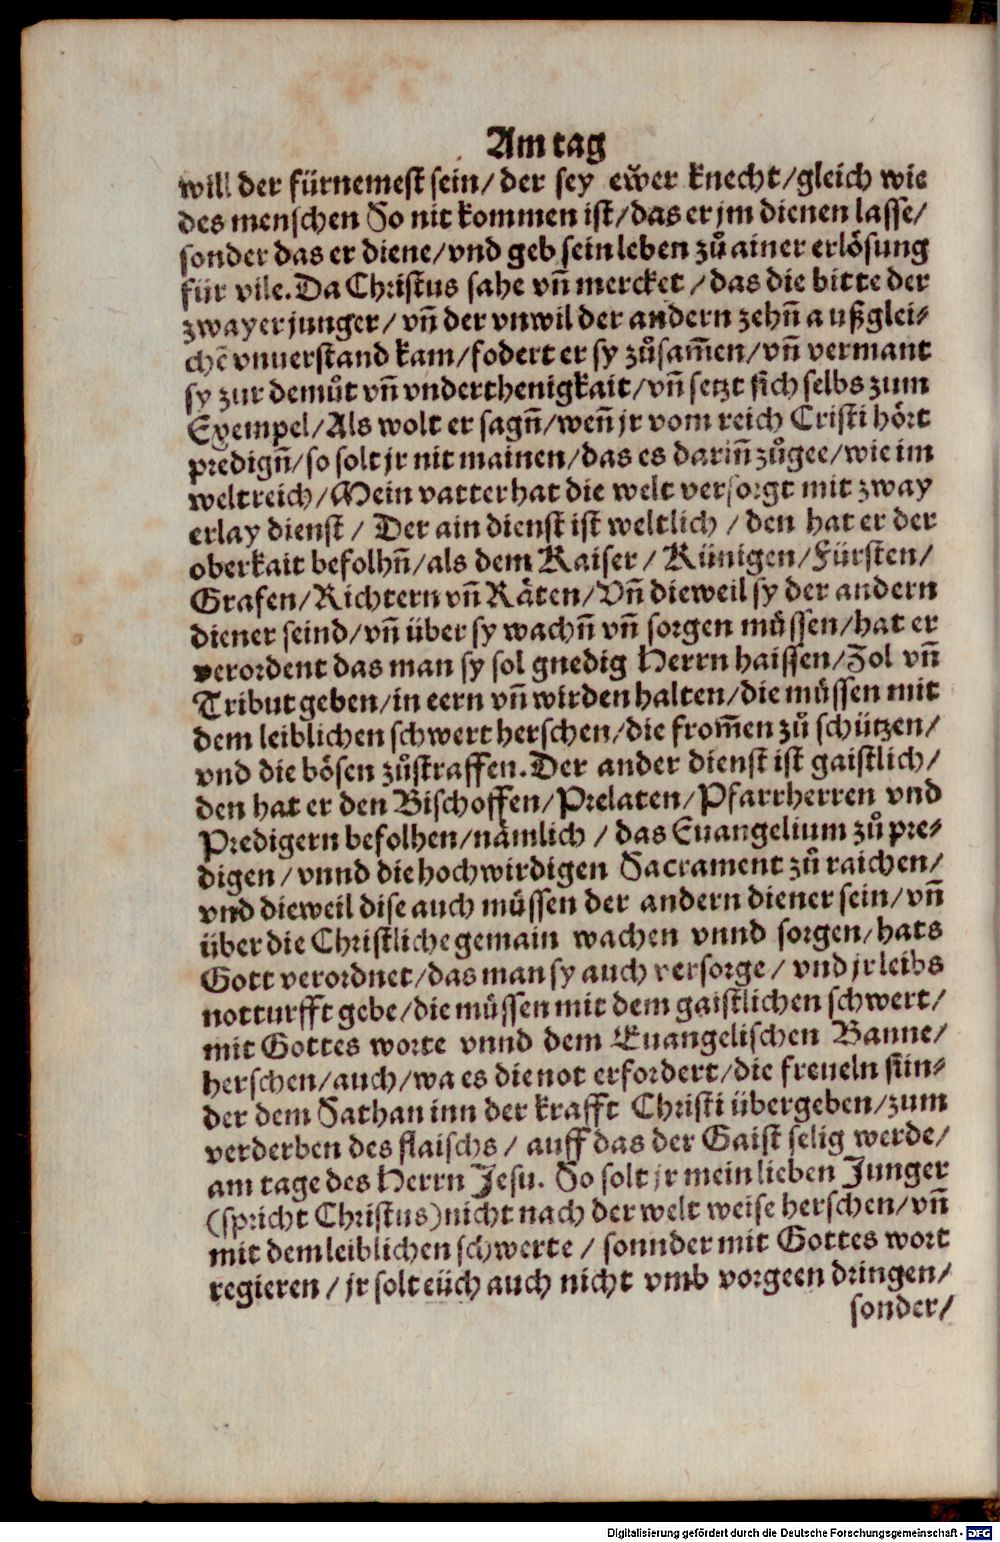 Am tag
will der fürnemest sein/ der sey ewer knecht/gleich wie
des menschen So nit kommen ist/das er jm dienen lasse/
sonder das er diene/vnd geb sein leben zů ainer erlösung
für vile. Da Christus sahe vñ mercket /das die bitte der
zwayer junger/ vñ der vnwil der andern zehñ auß glei-
chē vnuerstand kam/fodert er sy zůsam̃en/vñ vermant
sy zur demůt vñ vnderthenigkait/vñ setzt sich selbs zum
Exempel/Als wolt er sagñ/weñ jr vom reich Cristi hört
predigñ/so solt jr nit mainen/das es dariñ zůgee/wie im
weltreich/Mein vatter hat die welt versorgt mit zway
erlay dienst/ Der ain dienst ist weltlich /den hat er der
oberkait befolhñ/als dem Kaiser/ Künigen/Fürsten/
Grafen/Richtern vñ Räten/Vñ dieweil sy der andern
diener seind/vñ über sy wachñ vñ sorgen müssen/hat er
verordent das man sy sol gnedig Herrn haissen/Zol vñ
Tribut geben/in eern vñ wirden halten/die müssen mit
dem leiblichen schwert herschen/die from̃en zů schützen/
vnd die bösen zůstraffen. Der ander dienst ist gaistlich/
den hat er den Bischoffen/Prelaten/Pfarrherren vnd
Predigern befolhen/nämlich / das Euangelium zů pre-
digen/ vnnd die hochwirdigen Sacrament zů raichen/
vnd dieweil dise auch müssen der andern diener sein/vñ
über die Christliche gemain wachen vnnd sorgen/hats
Gott verordnet/das man sy auch versorge/ vnd jr leibs
notturfft gebe/die müssen mit dem gaistlichen schwert/
mit Gottes worte vnnd dem Euangelischen Banne/
herschen/auch/wa es die not erfordert/die freueln sün-
der dem Sathan inn der krafft Christi übergeben/zum
verderben des flaischs/ auff das der Gaist selig werde/
am tage des Herrn Jesu. So solt jr mein lieben Junger
(spricht Christus)nicht nach der welt weise herschen/vñ
mit dem leiblichen schwerte / sonnder mit Gottes wort
regieren/ jr solt eüch auch nicht vmb vorgeen dringen/
sonder/
Digitalisierung gefördert durch die Deutsche Forschungsgemeinschaft - DFG